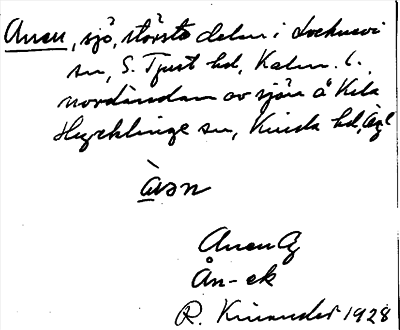 Anen, sjö, största delen i Locknevi
sn, S. Tjust hd, Kalm. l.
nordändan av sjön å Kisa
Hycklinge sn, Kinda hd, Ögl
Àṉən
Anen Ög
Ån-ek
R. Kinander 1928